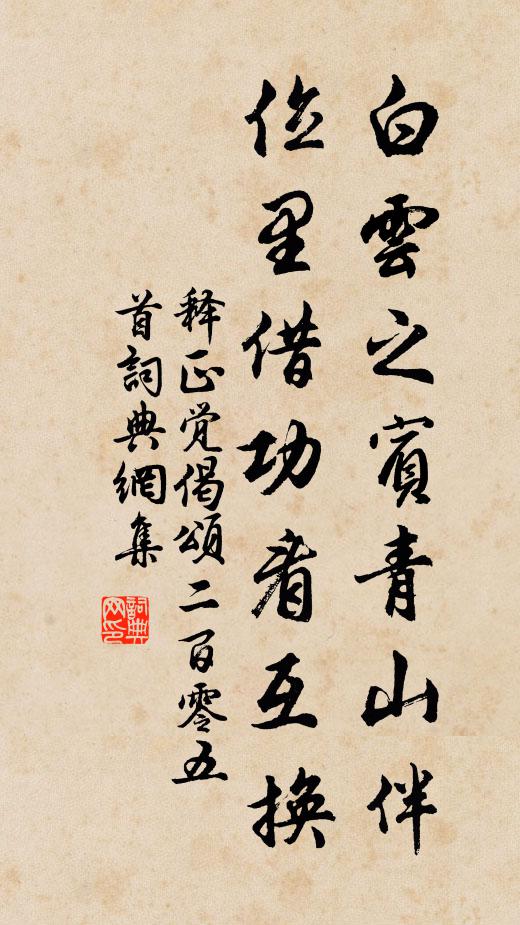 白雲之賓青山伴
位里借功看互換
释正觉偈頌二百零五
首詞典網集
詞典
网印